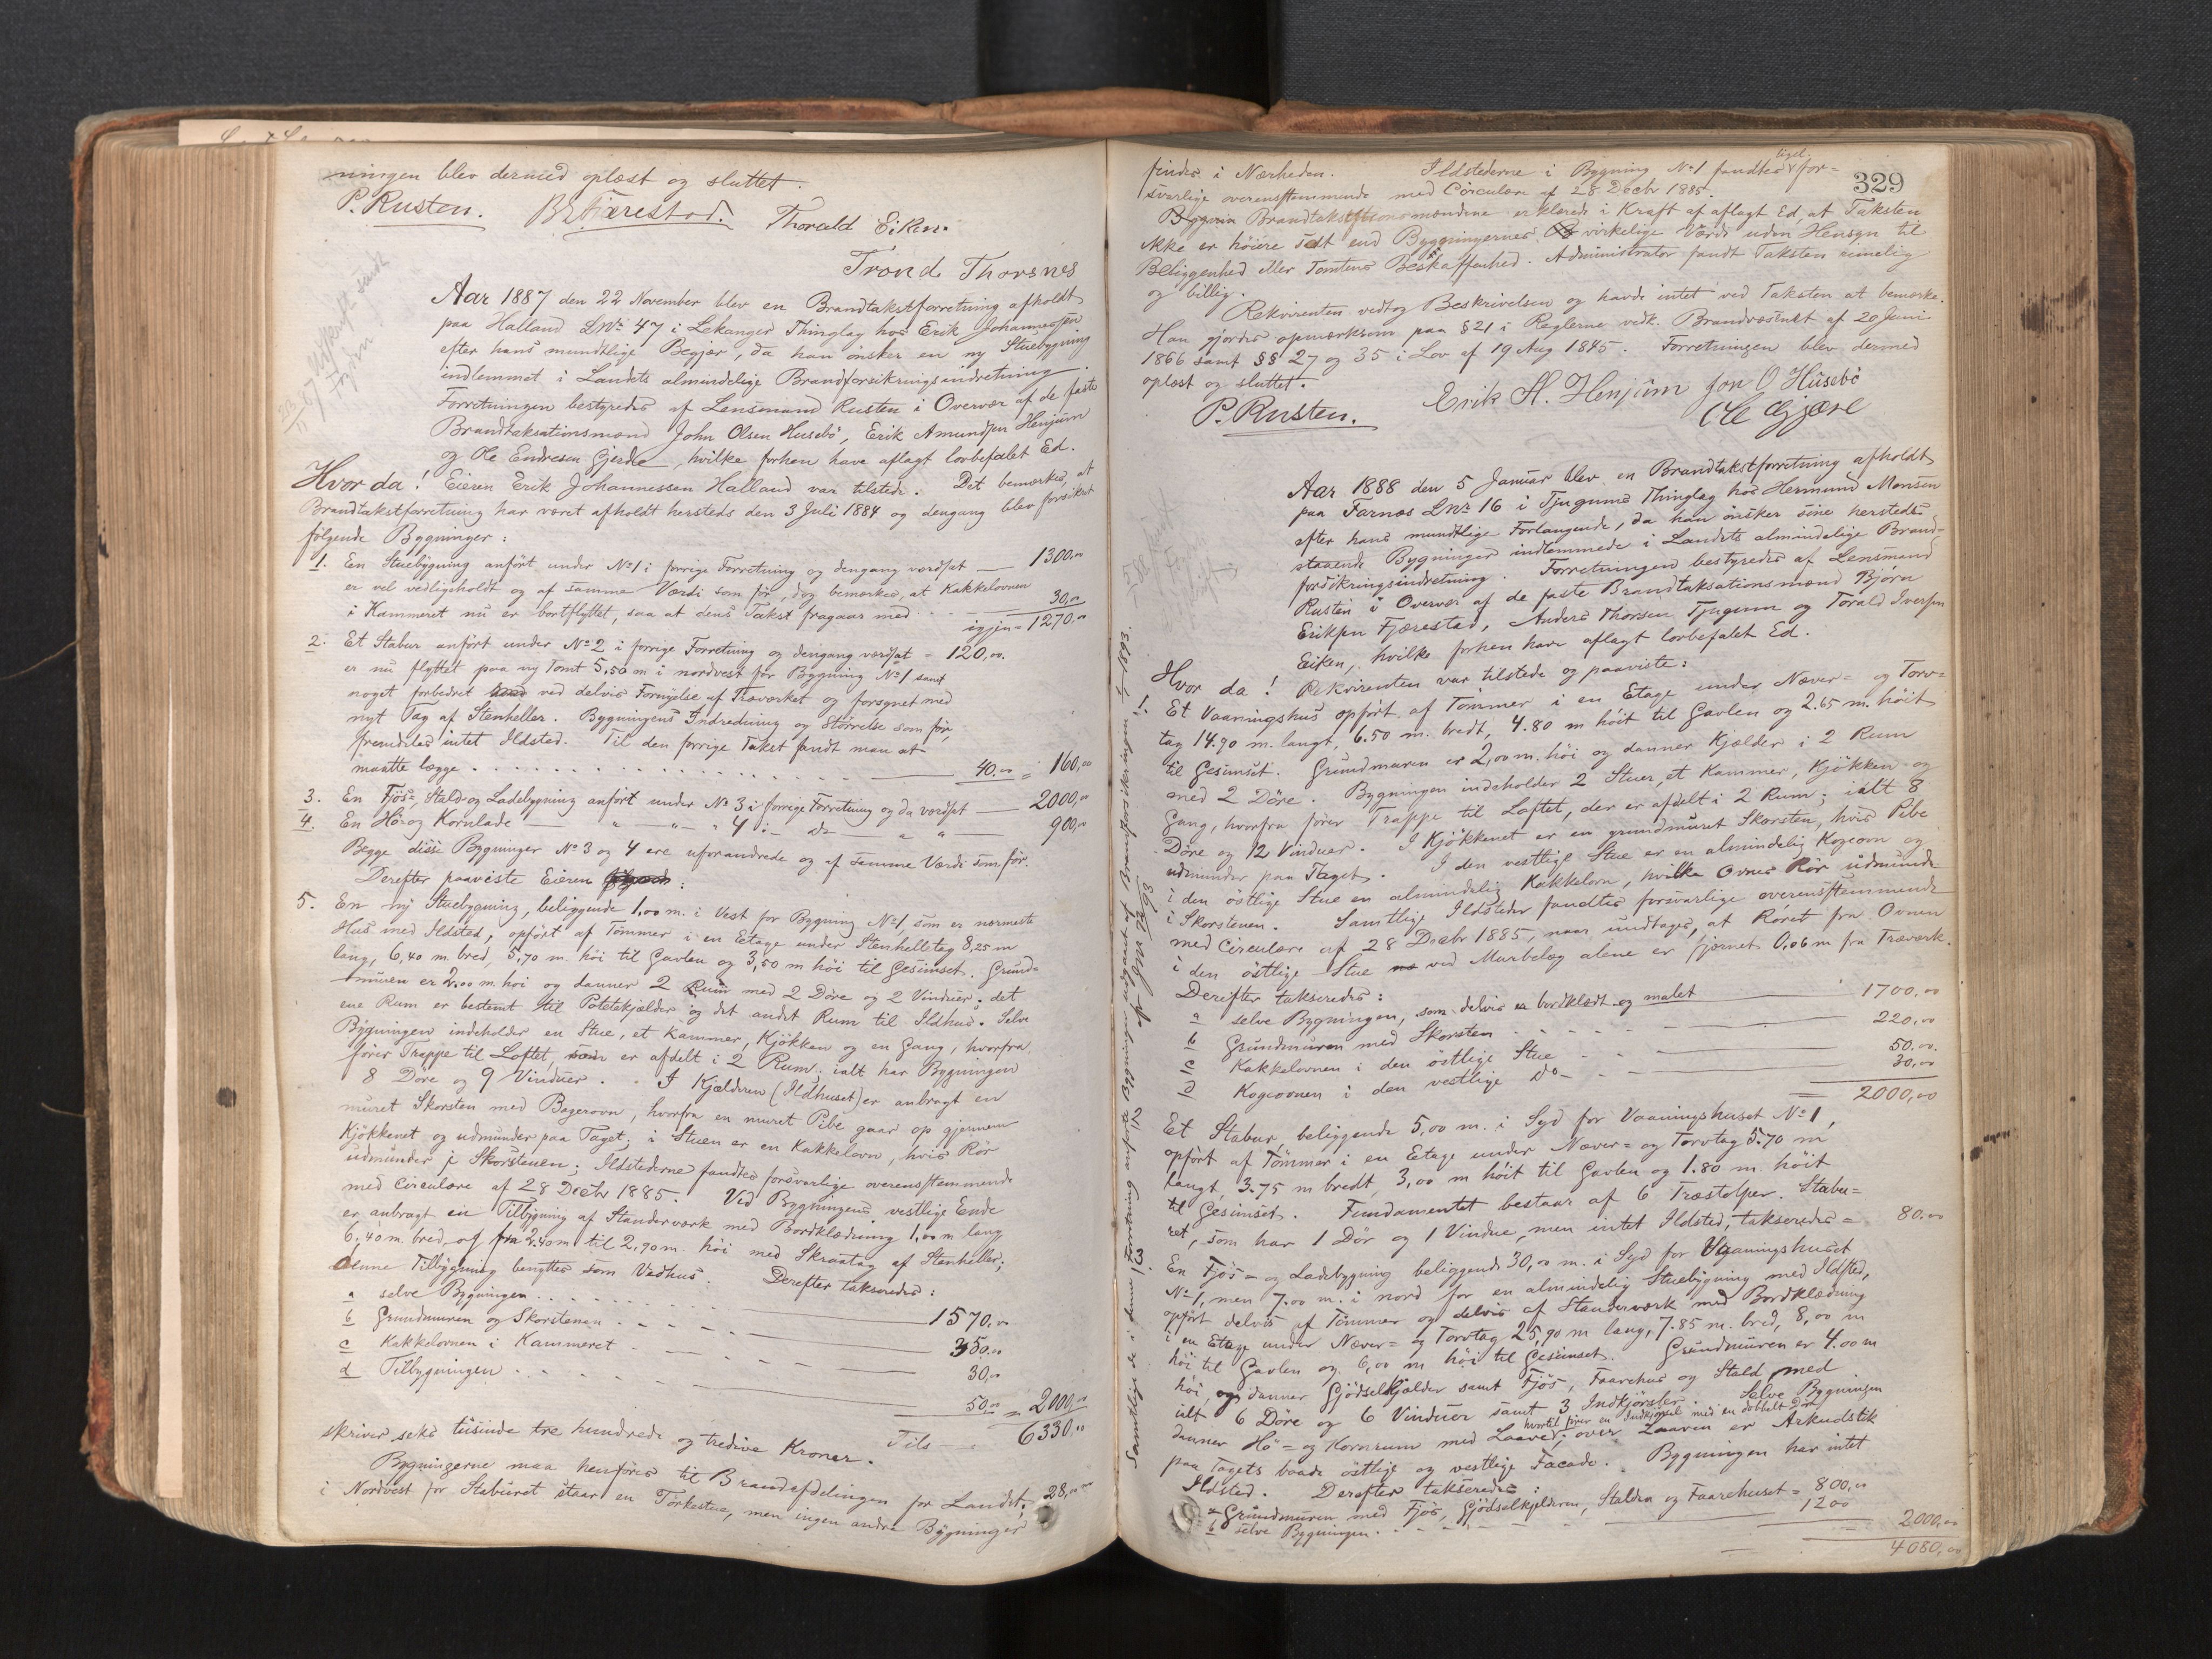 ningen blev dermed oplæst og sluttet.
P. Rusten. Thorald Eiken.
Trond Thorsnes
Aar 1887 den 22 November blev en Brandtakstforretning afholdt
paa Halland LNr 47 i Lekanger Thinglag hos Erik Johannessen
efter hans mundtlige Begjær, da han ønsker en ny Stuebygning
indlemmet i Landets almindelige Brandforsikringsindretning.
Forretningen bestyredes af Lensmand Rusten i Overvær af de faste
Brandtaksationsmænd John Olsen Husebö, Erik Amundsen Henjum
og Ole Endresen Gjerde, hvilke forhen have aflagt lovbefalet Ed.
Hvor da! Eieren Erik Johannessen Halland var tilstede. Det bemærkes, at
Brandtakstforretning har været afholdt hersteds den 3 Juli 1884 og dengang blev forsikret
følgende Bygninger:
1. En Stuebygning anført under No 1 i forrige Forretning og dengang værdsat — 1300.00
er vel vedligeholdt og af samme Værdi som før, dog bemærkes, at Kakkelovnen
i Kammeret nu er bortflyttet, saa at dens Takst fragaar med 30,00
igjen = 1270.00
2. Et Stabur anført under No 2 i forrige Forretning og dengang værdsat = 120,00.
er nu flyttet paa ny Tomt 5,50 m i nordvest for Bygning No 1 samt
noget forbedret ved delvis Fornyelse af Træværket og forsynet med
nyt Tag af Stenheller. Bygningens Indredning og Størrelse som før,
fremdeles intet Ildsted. Til den forrige Takst fandt man at
maatte lægge . . . . 40.00 = 160,00
3. En Fjös-, Stald- og Ladebygning anført under No 3 i forrige Forretning og da værdsat — 2000,00
4. En Hö- og Kornlade — " — " — " 4 i — do — " " — 900,00
Begge disse Bygninger No 3 og 4 ere uforandrede og af samme Værdi som før.
Derefter paaviste Eieren :
5. En ny Stuebygning, beliggende 1,00 m. i Vest for Bygning No 1, som er nærmeste
Hus med Ildsted, opført af Tømmer i en Etage under Stenhelletag 8,25 m
lang, 6,40 m. bred, 5,70 m. høi til Gavlen og 3,50 m høi til Gesimset. Grund-
muren er 2.00 m. høi og danner 2 Rum med 2 Döre og 2 Vinduer; det
ene Rum er bestemt til Potetkjælder og det andet Rum til Ildhus. Selve
Bygningen indeholder en Stue, et Kammer, Kjökken og en Gang, hvorfra
fører Trappe til Loftet, som er afdelt i 2 Rum; ialt har Bygningen
8 Döre og 9 Vinduer. I Kjælderen (Ildhuset) er anbragt en
muret Skorsten med Bagerovn, hvorfra en muret Pibe gaar op gjennem
Kjökkenet og udmunder paa Taget; i Stuen er en Kakkelovn, hvis Rör
udmunder i Skorstenen. Ildstederne fandtes forsvarlige overensstemmende
med Circulære af 28 Decbr 1885. Ved Bygningens vestlige Ende
er anbragt en Tilbygning af Standerværk med Bordklædning 1,00 m lang
6,40 m. bred, og fra 2.40 m til 2,90 m. høi med Skraatag af Stenheller;
denne Tilbygning benyttes som Vedhus. Derefter takseredes:
a selve Bygningen . . . 1570,00
b Grundmuren og Skorstenen . . . 350.00
c Kakkelovnen i Kammeret . . . 30,00
d Tilbygningen . . . 50,00 = 2000,00
Tils — 6330,00
skriver seks tusinde tre hundrede og tredive Kroner.
Bygningerne maa henføres til Brandafdelingen for Landet;
i Nordvest for Staburet staar en Tørkestue, men ingen andre Bygninger
329
findes i Nærheden. Ildstederne i Bygning No 1 fandtes ligel. for-
svarlige overensstemmende med Circulære af 28 Decbr 1885.
Brandtakstmændene erklærede i Kraft af aflagt Ed, at Taksten
ikke er høiere sat end Bygningernes virkelige Værdi uden Hensyn til
Beliggenhed eller Tomtens Beskaffenhed. Administrator fandt Taksten rimelig
og billig.
Rekvirenten vedtog Beskrivelsen og havde intet ved Taksten at bemærke.
Han gjordes opmærksom paa § 21 i Reglerne vedk. Brandvæsenet af 20 Juni
1866 samt §§ 27 og 35 i Lov af 19 Aug 1845. Forretningen blev dermed
oplæst og sluttet.
P. Rusten. Erik A. Henjum Jon O Husebö
Ole Gjære
Aar 1888 den 5 Januar blev en Brandtakstforretning afholdt
paa Farnæs LNr 16 i Tjugums Thinglag hos Hermund Monsen
efter hans mundtlige Forlangende, da han ønsker sine hersteds
staaende Bygninger indlemmede i Landets almindelige Brand-
forsikringsindretning. Forretningen bestyredes af Lensmand
Rusten i Overvær af de faste Brandtaksationsmænd Bjørn
Eriksen Fjærestad, Anders Thorsen Tjugum og Torald Iversen
Eiken, hvilke forhen have aflagt lovbefalet Ed.
Hvor da! Rekvirenten var tilstede og paaviste:
1. Et Vaaningshus opført af Tømmer i en Etage under Næver- og Torv-
tag 14.70 m. langt, 6.50 m. bredt, 4.80 m høit til Gavlen og 2.65 m. høit
til Gesimset. Grundmuren er 2,00 m. høi og danner Kjælder i 2 Rum
med 2 Döre. Bygningen indeholder 2 Stuer, et Kammer, Kjökken og
Gang, hvorfra fører Trappe til Loftet, der er afdelt i 2 Rum; ialt 8
Döre og 12 Vinduer. I Kjökkenet er en grundmuret Skorsten, hvis Pibe
udmunder paa Taget. I den vestlige Stue er en almindelig Kogeovn og
i den östlige Stue en almindelig Kakkelovn, hvilke Ovnes Rör udmunde
i Skorstenen. Samtlige Ildsteder fandtes forsvarlige overensstemmende
med Circulære af 28 Decbr 1885, naar undtages, at Röret fra Ovnen
i den östlige Stue ved Murbelæg alene er fjernet 0,06 m fra Træværk.
Derefter takseredes:
a selve Bygningen, som delvis er bordklædt og malet — 1700,00
b Grundmuren med Skorsten — 220,00
c Kakkelovnen i den östlige Stue — 50.00.
d Kogeovnen i den vestlige do — 30,00
= 2000,00
2. Et Stabur, beliggende 5,00 m. i Syd for Vaaningshuset No 1,
opført af Tømmer i en Etage under Næver- og Torvtag 5.70 m
langt, 3.75 m bredt, 3,00 m høit til Gavlen og 1.80 m høit
til Gesimset. Fundamentet bestaar af 6 Træstolper. Stabu-
ret, som har 1 Dör og 1 Vindue, men intet Ildsted, takseredes = 80.00
3. En Fjös- og Ladebygning beliggende 30,00 m. i Syd for Vaaningshuset
No 1, men 7.00 m. i nord for en almindelig Stuebygning med Ildsted,
opført delvis af Tømmer og delvis af Standerværk med Bordklædning
i en Etage under Næver- og Torvtag 25,90 m lang, 7.85 m. bred, 8,00 m
høi til Gavlen og 6,00 m høi til Gesimset. Grundmuren er 4.00 m
høi og danner Gjödselkjælder samt Fjös, Faarehus og Stald med
ialt 6 Döre og 6 Vinduer samt 3 Indkjörsler. Selve Bygningen
hvortil fører en Indkjørsel med en dobbelt Dør
danner Hö- og Kornrum med Laaved; over Laaven er Arkudstik
paa Tagets baade östlige og vestlige Facade. Bygningen har intet
Ildsted. Derefter takseredes:
a Grundmuren med Fjös, Gjödselkjælderen, Stalden og Faarehuset = 800,00
b selve Bygningen . . . 1200 2000,00
4080,00
Samtlige de i denne Forretning anførte Bygninger udgaaet af Brandforsikringen